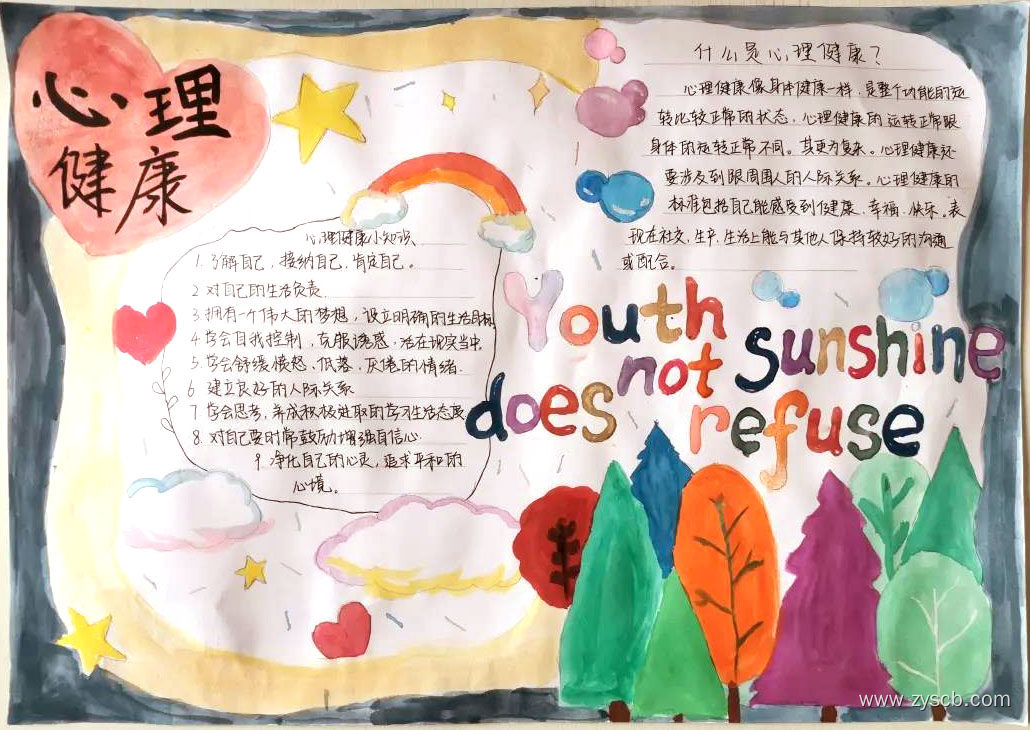 心理
健康
什么是心理健康？
心理健康像身体健康一样，是整个功能的运
转比较正常的状态，心理健康的运转正常跟
身体的运转正常不同。其更为复杂。心理健康还
要涉及到跟周围人的人际关系。心理健康的
标准包括自己能感受到健康、幸福、快乐。表
现在社交，生产，生活上能与其他人保持较好的沟通
或配合。
心理健康小知识
1. 了解自己，接纳自己，肯定自己。
2 对自己的生活负责
3 拥有一个伟大的梦想，设立明确的生活目标
4 学会自我控制，克服诱惑，活在现实当中。
5. 学会舒缓愤怒、低落、厌倦的情绪.
6 建立良好的人际关系
7 学会思考，养成积极进取的学习生活态度
8. 对自己要时常鼓励增强自信心
9. 净化自己的心灵，追求平和的
心境。
Youth
not sunshine
does refuse
www.zyscb.com